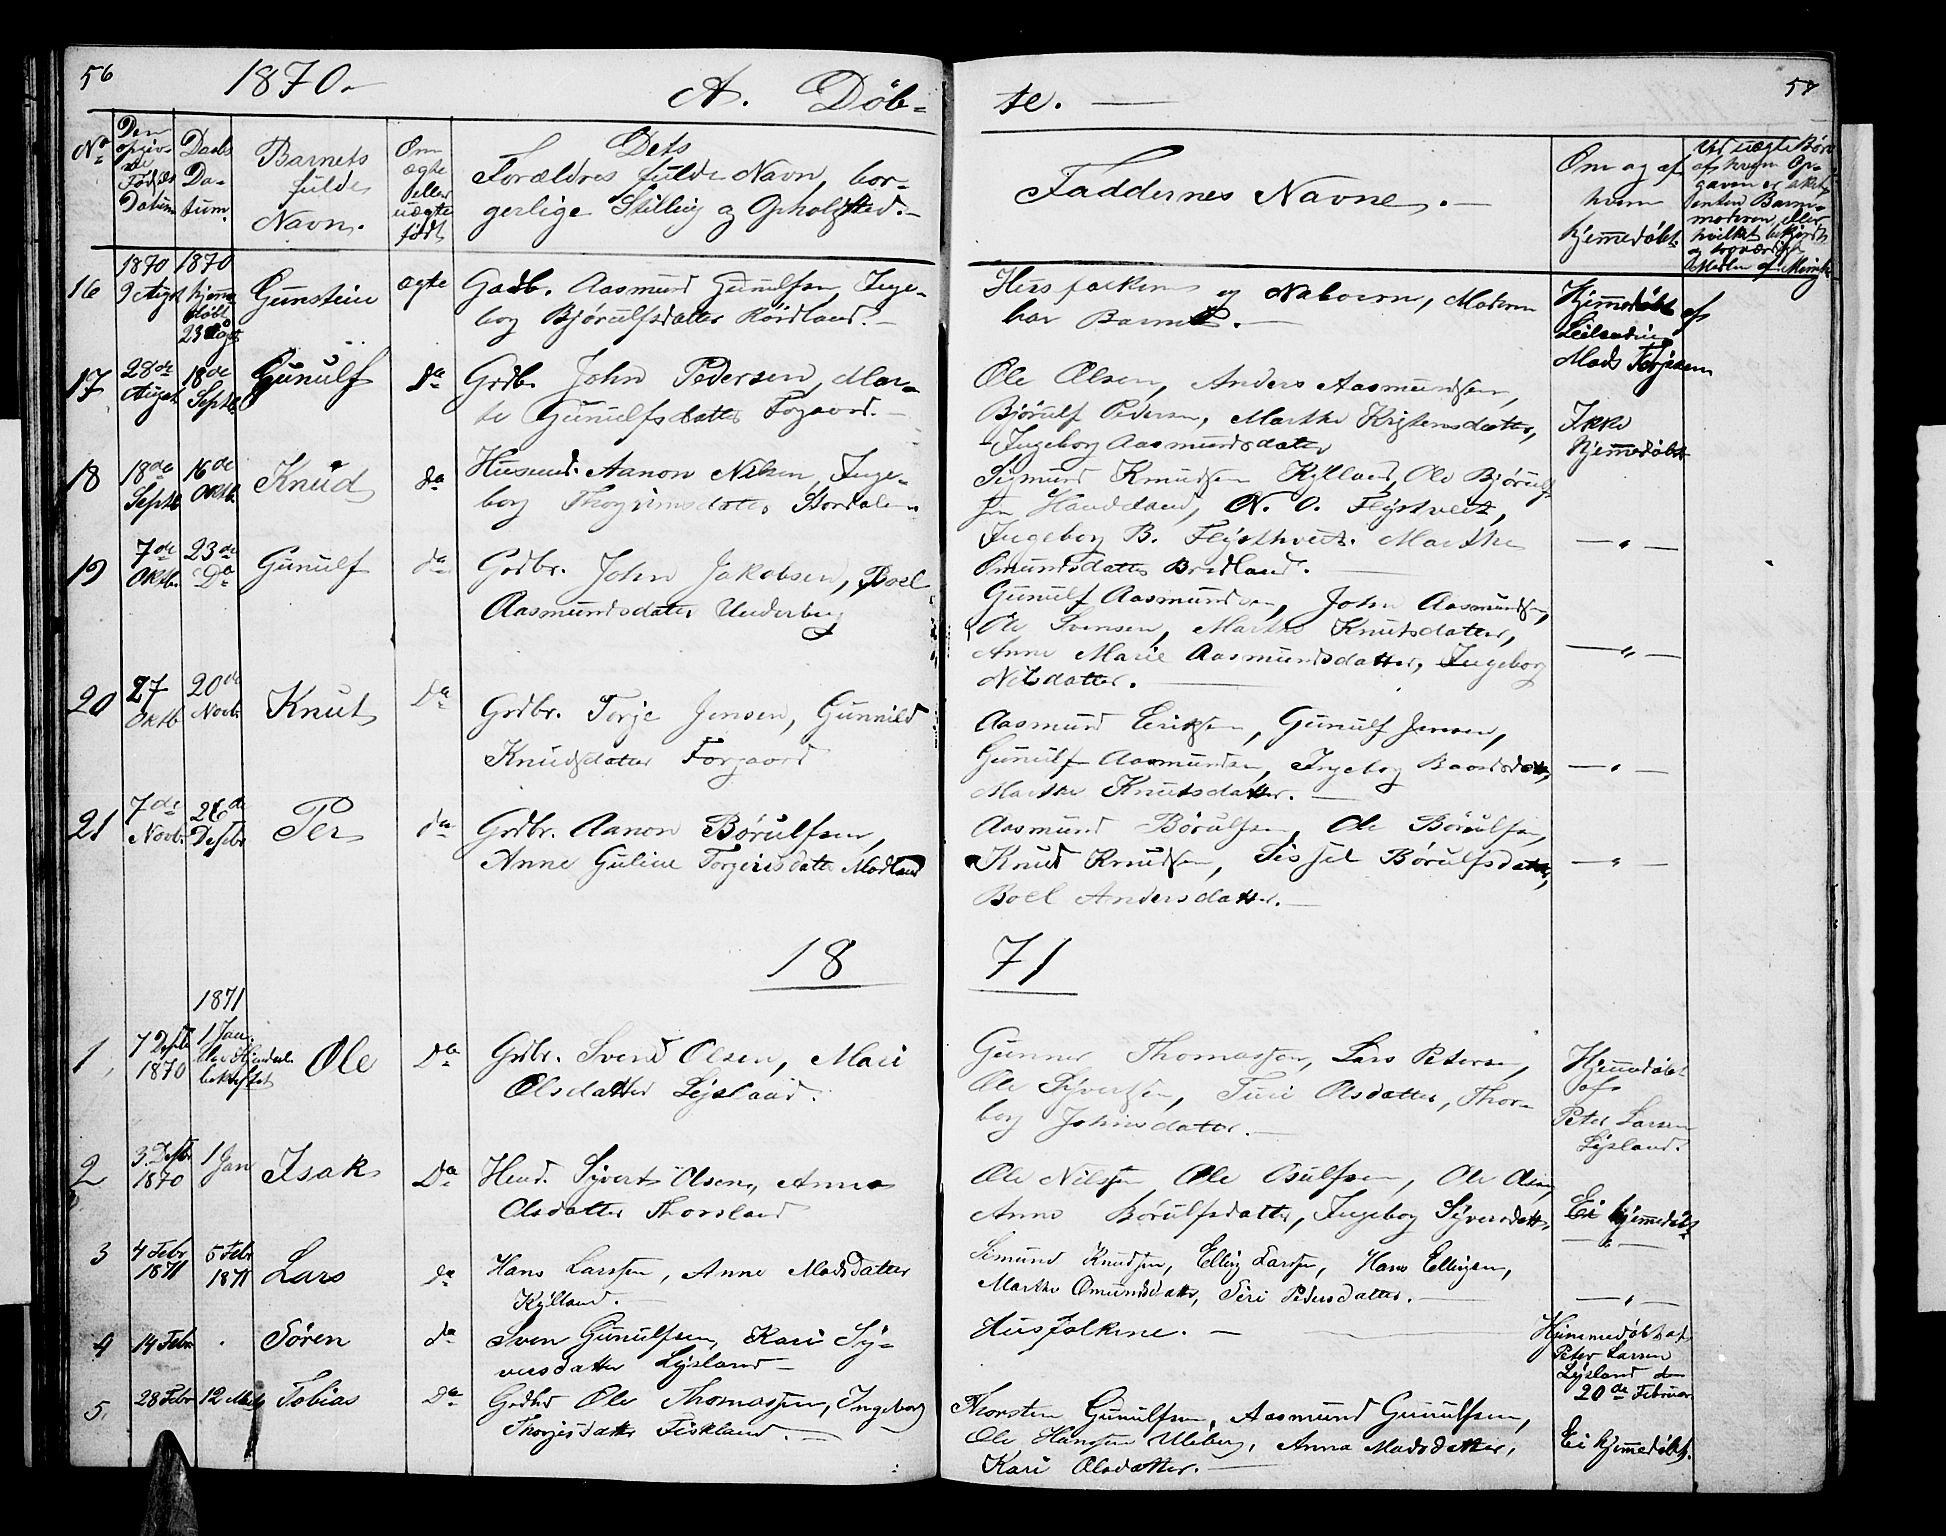 56
1870.
A. Døb-
te. —
No
Den
opgivn
de
Fødsels
Datum
Daabs
Da-
tum.
Barnets
fulde
Navn.
Om
ægte
eller
uægte
født
Dets
Forældres fulde Navn, bor-
gerlige Stilling og Opholdsted.
Faddernes Navne.
Om og af
hvem
hjemmedøbt.
16
1870
9 Augst
1870
hjemme
døbt
23 Augt
Gunstein
ægte
Gadb. Aasmund Gunulfsen, Inge-
borg Bjørulfsdatter Røidland.
Husfolkene og Naboern, Moderen
bar Barnet.
Hjemmedøbt af
Mads Terjesen
17
28de
August
18de
Septb.
Gunulf
do
Grdb. John Pedersen, Mar-
te Gunulfsdatter Forgaard.
Ole Olsen, Anders Aasmundsen,
Bjørulf Pedersen, Marthe Kristensdatter,
Ingeborg Aasmundsdatter
Ikke
hjemmedøbt
18
18de
Septb
16de
Oktb.
Knud
do
Husmd. Aanon Nilsen, Inge-
borg Thorgrimsdatter Stordalen
Sigmund Knudsen Kylland, Ole Bjørulf
sen Hauddand, N. O. Fløystveit,
Ingeborg B. Fløysthveit. Marthe
Omundsdatter Bredland.
— " —
19
7de
Oktb.
23de
Do
Gunulf
do
Grdbr. John Jakobsen, Boel
Aasmundsdatter Underberg
Gunulf Aasmundsen, John Aasmundsen,
Ole Svensen, Marthe Knutsdatter,
Anne Marie Aasmundsdatter, Ingeborg
Nilsdatter.
— " —
20
27
Oktb
20de
Novb.
Knut
do
Grdbr. Torje Jensen, Gunnild
Knudsdatter Forgaard
Aasmund Eriksen, Gunulf Jensen,
Gunulf Aasmundsen, Ingeborg Baardsdatter,
Marthe Knutsdatter.
— " —
21
7de
Novb.
26de
Desbr
Per
do
Grdbr. Aanon Børulfsen,
Anne Guline Torgeirsdatter Modland
Aasmund Børulfsen, Ole Børulfsen,
Knud Knudsen, Sissel Børulfsdatter,
Boel Andersdatter.
— " —
18 71
1
7 Desbr
1870
1871
1 Jan.
bekræftet
Ole
Do
Grdbr. Svend Olsen, Mari
Olsdatter Lisland.
Gunner Thomassen, Lars Petersen,
Ole Syvertsen, Turi Olsdatter, Thor-
borg Johnsdatter.
Hjemmedøbt
af
Peter Larsen
Lisland.
2
3. Desbr
1870
1 Jan
Isak
Do
Husd. Syvert Olsen, Anne
Olsdatter Thorsland
Ole Nilsen Ole Osulfsen, Ole Olsen,
Anne Børulfsdatter, Ingeborg Syversdatter
Ei hjemmedøbt
— " —
3
4 Febr
1871
5 Febr
1871
Lars
do
Hans Larssen, Anne Madsdatter
Kylland.
Simund Knudsen, Elling Larssen, Hans Ellingsen,
Marthe Omundsdatter, Siri Pedersdatter.
— " —
4
14 Febr
Søren
do
Sven Gunulfsen, Kari Sy-
versdatter Lisland
Husfolkene.
Hjemmedøbt af
Peter Larsen
Lisland den
20de Februar
5.
28 Febr
12 Mats
Tobias
Do
Grdbr Ole Thomassen, Ingeborg
Thorjesdatter Fiskland.
Thorsten Gunulfsen, Aasmund Gunulfsen,
Ole Hanssen Uleberg, Anna Madsdatter,
Kari Olsdatter.
Ei hjemmedøbt.